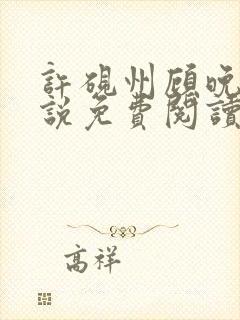 許硯州顧晚
說免費閱讀
高祥